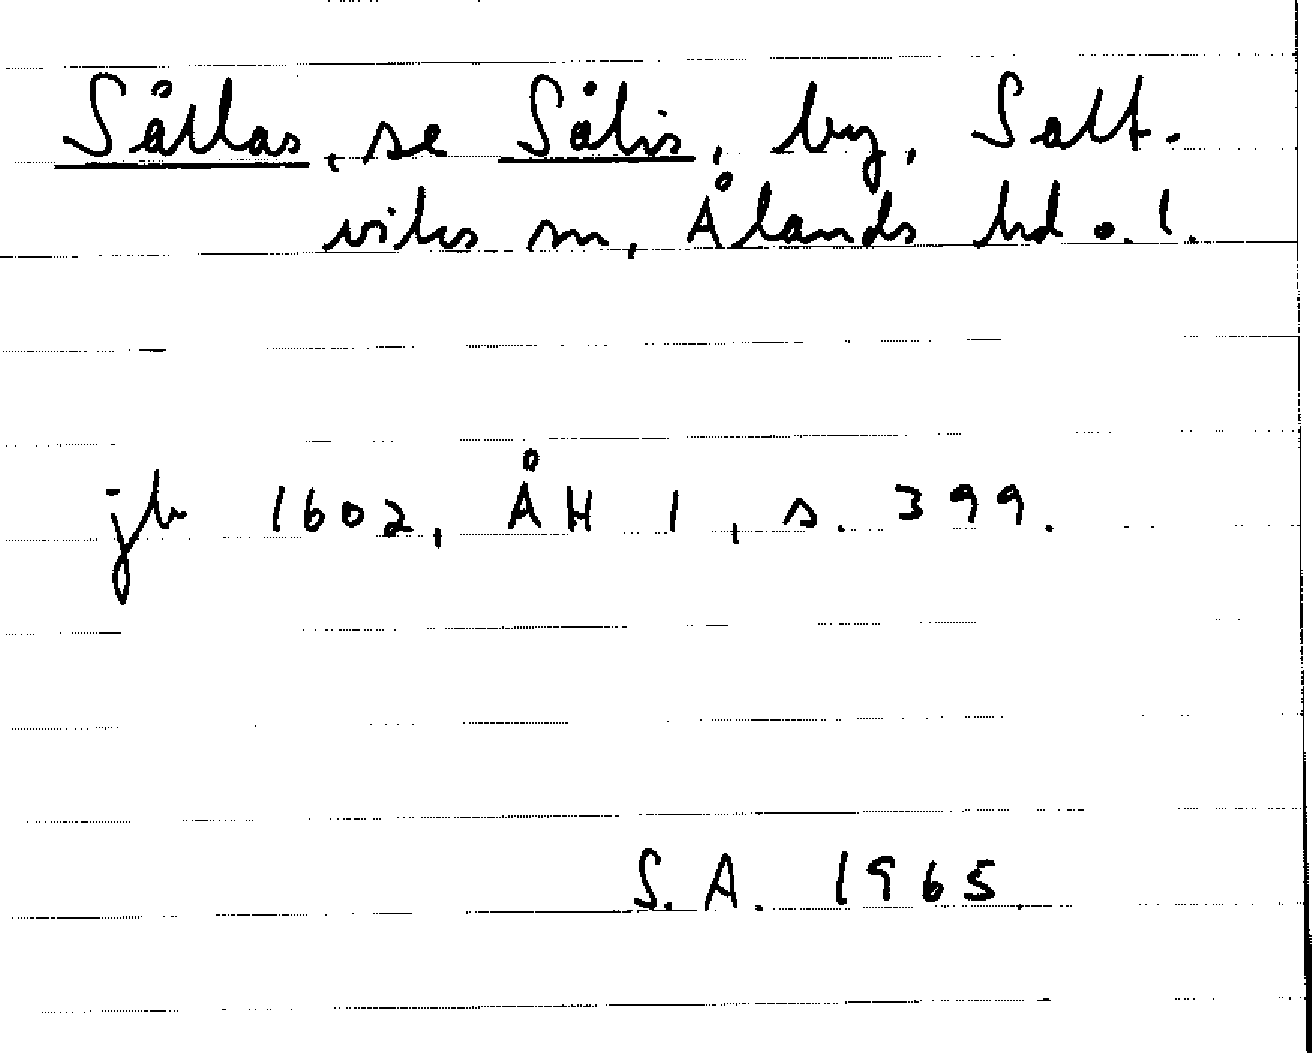 Sållas, se Sålis, by, Salt-
viks sn, Ålands hd o. l.
jb 1602, ÅH 1, s. 399.
S.A. 1965